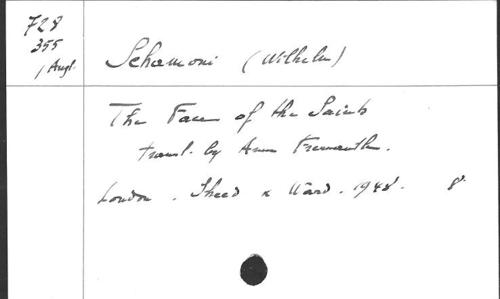 728
355
/Angl.
Schamoni (Wilhelm)
The Face of the Saints
transl. by Anne Fremantle.
London. Sheed & Ward. 1948. 8°